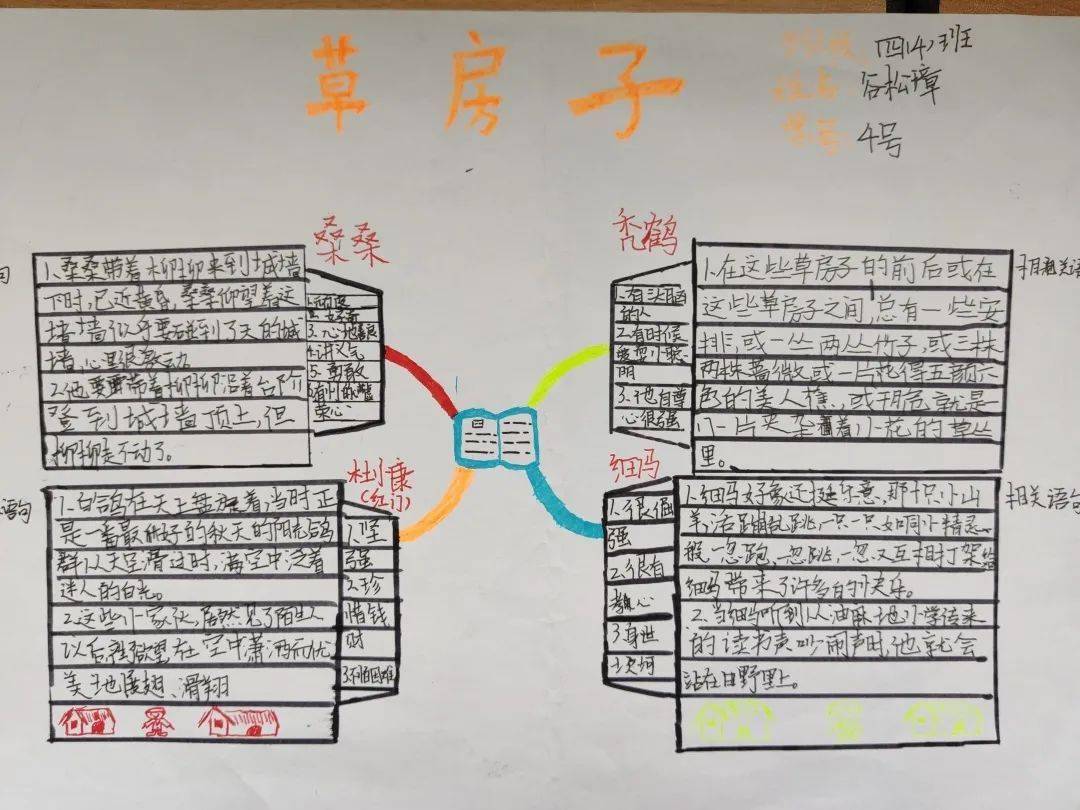 草房子
班级 四(4)班
姓名 谷松璋
学号 4号
桑桑
1.桑桑带着柳柳来到城墙
下时,已近黄昏,桑桑仰望着这
堵墙似乎要碰到了天的城
墙,心里很激动。
2.他要带着柳柳沿着台阶
登到城墙顶上,但
柳柳走不动了。
1.顽皮
2.好奇
3.心地善良
4.讲义气
5.勇敢
秃鹤
1.有头脑
的人
2.有时候
聪
明
3.他自尊
心很强
1.在这些草房子的前后或在
这些草房子之间,总有一些安
排,或一丛两丛竹子,或三株
两株蔷薇,或一片花得五颜六
色的美人蕉,或干脆就是
一片夹杂着小花的草丛
里。
相关语
杜小康
(红门)
语句
1.白鸽在天上盘旋着,当时正
是一番最好的秋天的阳光,鸽
群从天空滑过时,满空中泛着
迷人的白光。
2.这些小家伙,居然见了陌生人
以后 在空中潇洒而优
美地展翅、滑翔
1.坚
强
2.珍
惜钱
财
3.不怕困难
细马
1.很倔
强
2.很有
孝心
3.身世
坎坷
1.细马好像还挺乐意,那十只小山
羊,活蹦乱跳,一只一只如同小精灵
一般,忽跑,忽跳,忽又互相打架,给
细马带来了许多的快乐。
2.当细马听到从油麻地小学传来
的读书声吵闹声时,他就会
站在田野里。
相关语句